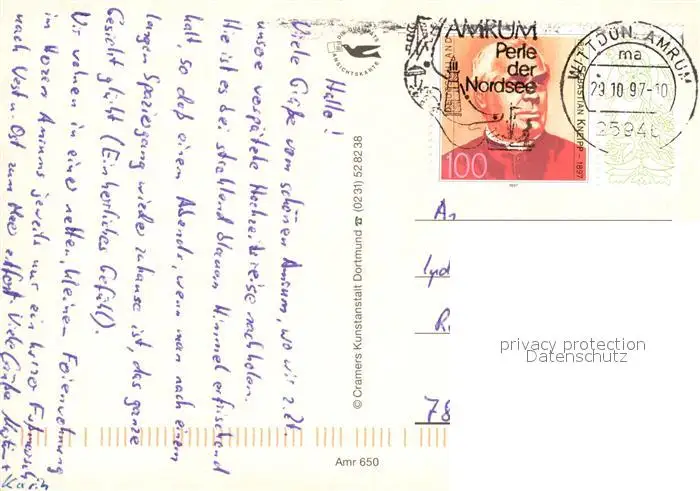 Hallo!
Viele Grüße vom schönen Amrum, wo wir z.Zt.
unsere verspätete Hochzeitsreise nachholen.
Hier ist es bei strahlend blauem Himmel erfrischend
kalt, so daß einem Abends, wenn man nach einem
langen Spaziergang wieder zuhause ist, das ganze
Gesicht glüht (Ein herrliches Gefühl).
Wir wohnen in einer netten, kleinen Ferienwohnung
im Herzen Amrums jeweils nur ein kurzer Fußmarsch
nach West u. Ost zum Meer entfernt. Viele Grüße +
ANSICHTSKARTE
© Cramers Kunstanstalt Dortmund ☎ (0231) 528238
Amr 650
AMRUM
Perle
der
Nordsee
SEBASTIAN KNEIPP – 1897
100
1997
WITTDÜN, AMRUM
ma
29.10.97-10
25946
An
Lyd
R
78
privacy protection
Datenschutz